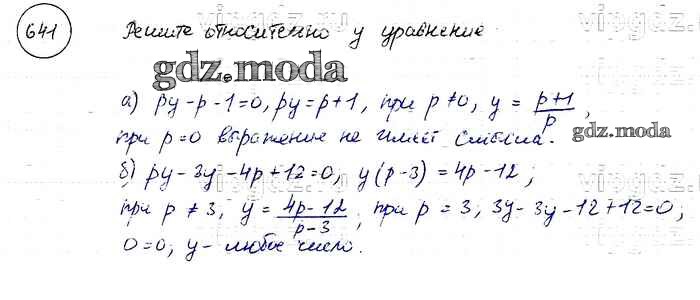 641 Решите относительно y уравнение
gdz.moda
а) py-p-1=0, py=p+1, при p≠0, y = p+1/p,
при p=0 выражение не имеет смысла.
gdz.moda
б) py-3y-4p+12=0, y(p-3)=4p-12;
при p≠3, y = 4p-12/p-3; при p=3, 3y-3y-12+12=0;
0=0, y-любое число.